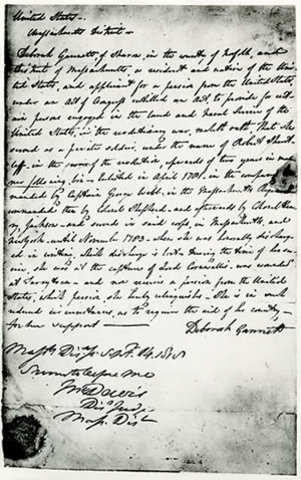 United States.—
Massachusetts District.—
Deborah Gannett of Sharon, in the county of Norfolk, and
District of Massachusetts, a resident and native of the Uni-
ted States, and applicant for a pension from the United States,
under an Act of Congress entitled an Act, to provide for cert-
ain persons engaged in the land and Naval Service of the
United States, in the revolutionary war, maketh oath, that she
served as a private soldier, under the name of Robert Shurt-
leff, in the war of the revolution, upwards of two years in man-
ner following, viz. enlisted in April 1781, in the company com-
manded by Captain George Webb, in the Massachusetts Regiment
commanded then by Colonel Shepherd, and afterwards by Colonel Hen-
ry Jackson,—and served in said corps, in Massachusetts, and
New York,—until November 1783—when she was honorably discharg-
ed in writing, which discharge is lost. During the time of her ser-
vice, she was at the capture of Lord Cornwallis, was wounded
at Tarrytown—and now receives a pension from the United
States, which pension she hereby relinquishes.—She is in such
reduced circumstances, as to require the aid of her country,—
for her support.—
Deborah Gannett
Massts Dist Sept. 14. 1818
Sworn to before me
Davis
Dist Judge
Mass. Dist.